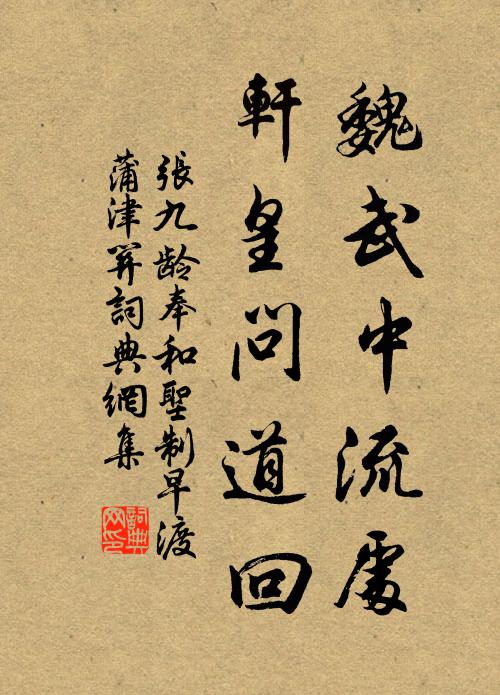 魏武中流處
軒皇問道回
張九齡奉和聖制早渡
蒲津關詞典網集
詞典
网印